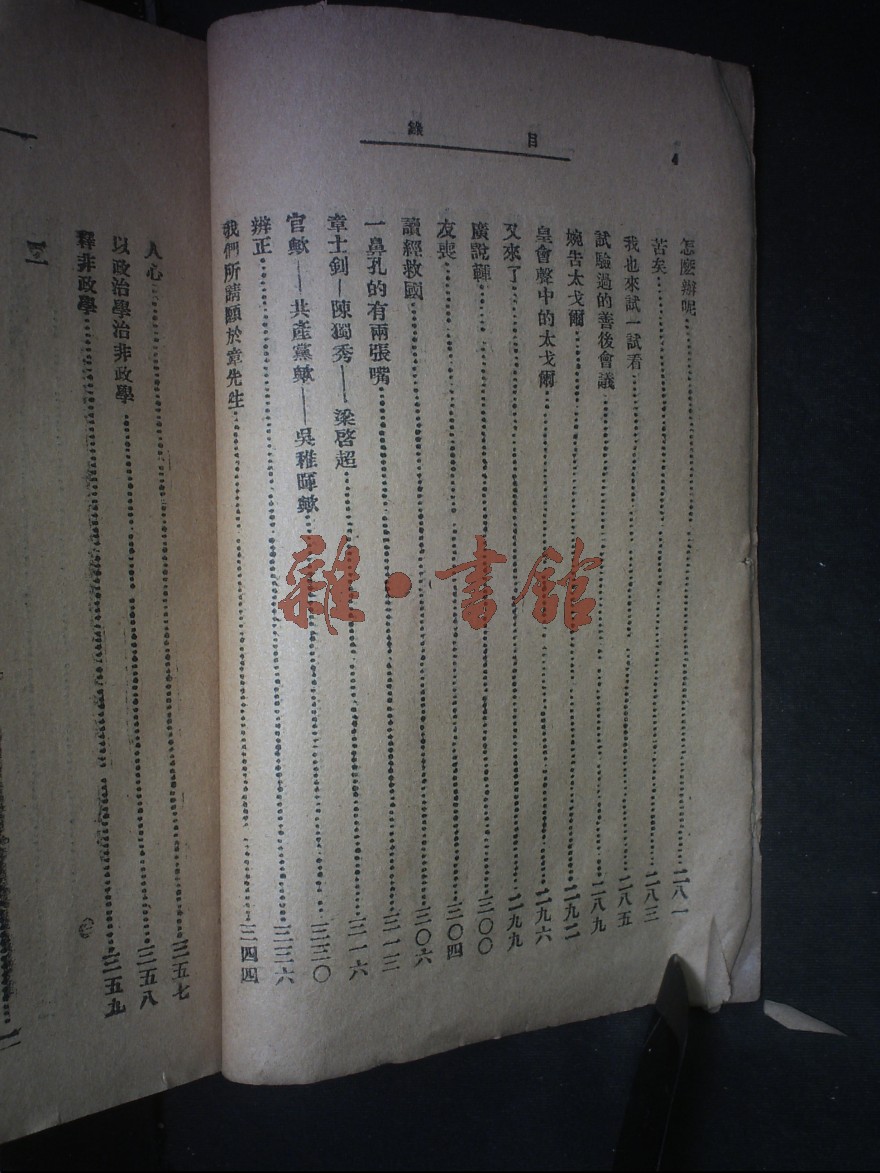 目錄
4
怎麼辦呢 二八一
苦矣 二八三
我也來試一試看 二八五
試驗過的善後會議 二八九
婉告太戈爾 二九二
皇會聲中的太戈爾 二九六
又來了 二九九
廣說韡 三〇〇
友喪 三〇四
讀經救國 三〇六
一鼻孔的有兩張嘴 三一三
章士釗—陳獨秀——梁啓超 三一六
官歟——共產黨歟——吳稚暉歟 三三〇
辨正 三三六
我們所請願於章先生 三四四
人心 三五七
以政治學治非政學 三五八
釋非政學 三五九
雜·書館